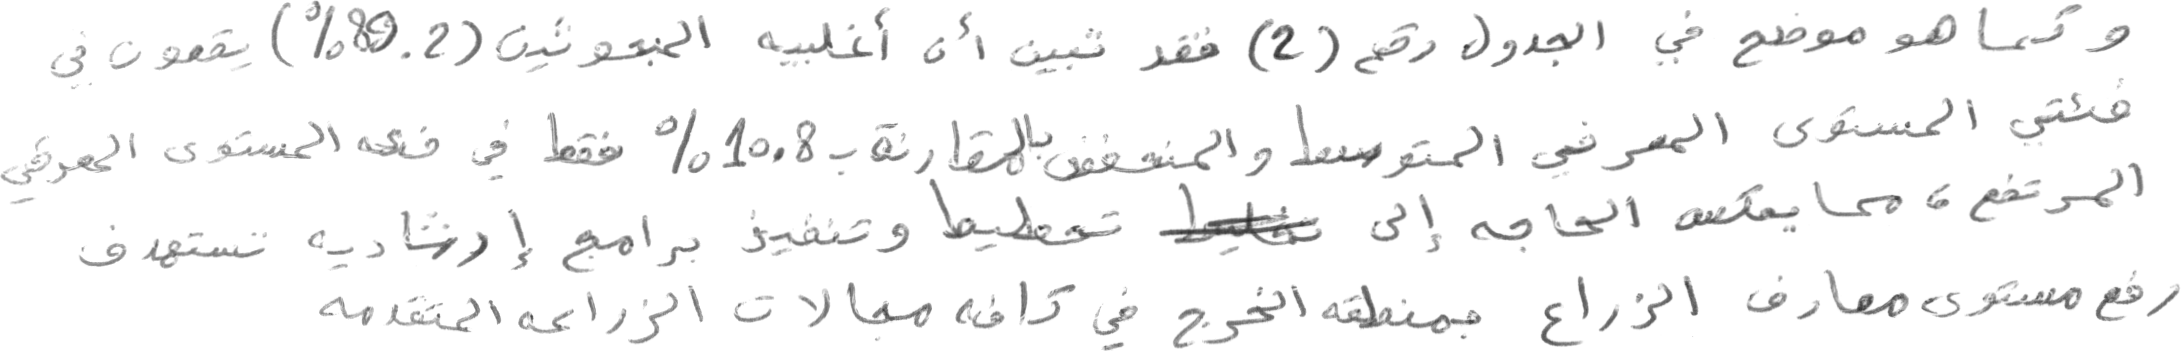 وكما هو موضح في الجدول رقم (2) فقد تبين أن أغلبيه المبحوثين (89.2%) يقعون في
فئتي المستوى المعرفي المتوسط والمنخفض بالمقارنة بـ 10.8% فقط في فئه المستوى المعرفي
المرتفع، مما يعكس الحاجه إلى تخطيط وتنفيذ برامج إرشاديه تستهدف
رفع مستوى معارف الزراع بمنطقه الخرج في كافه مجالات الزراعه المتقدمه